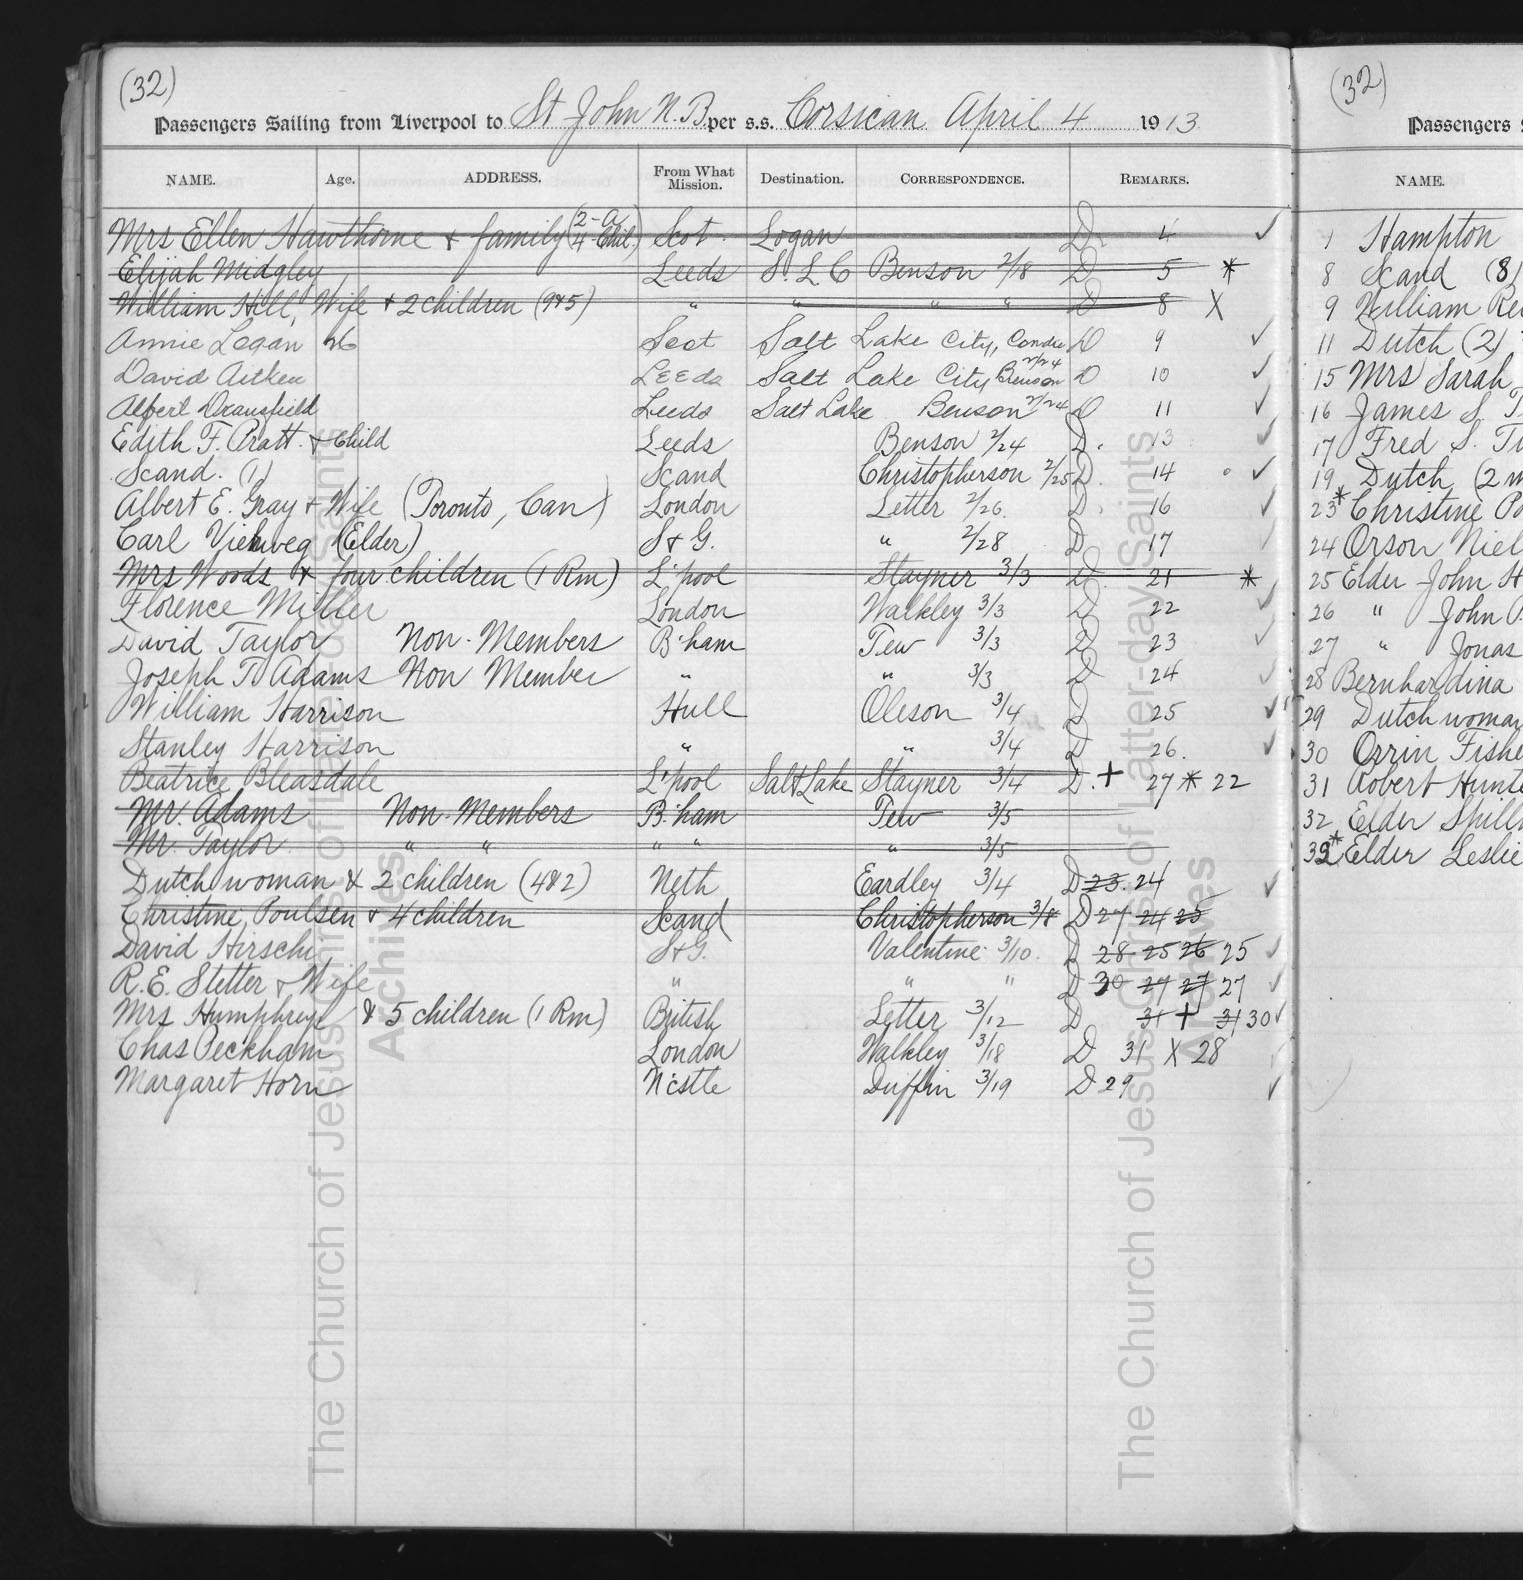 (32)
Passengers Sailing from Liverpool to St John N.B. per s.s. Corsican April 4 1913
NAME. Age. ADDRESS. From What Mission. Destination. CORRESPONDENCE. REMARKS.
Mrs Ellen Hawthorne & family (2-A 4-Chil.) Scot Logan D. 4 ✓
Elijah Midgley Leeds S. L C Benson 2/18 D 5 *
William Hill, Wife & 2 children (9&5) " " " " D 8 X
Annie Logan 26 Scot Salt Lake City, Condie D 9 ✓
David Aitken Leeds Salt Lake City Benson 2/24 D 10 ✓
Albert Dransfield Leeds Salt Lake Benson 2/24 D 11 ✓
Edith F. Pratt & child Leeds Benson 2/24 D. 13 ✓
Scand. (1) Scand Christopherson 2/25 D. 14 ✓
Albert E. Gray & Wife (Toronto, Can) London Letter 2/26 D. 16 ✓
Carl Viehweg (Elder) S & G. " 2/28 D 17 ✓
Mrs Woods & four children (1 Rm) L'pool Stayner 3/3 D. 21 *
Florence Miller London Walkley 3/3 D 22 ✓
David Taylor Non-Members B'ham Tew 3/3 D 23 ✓
Joseph T. Adams Non Member " " 3/3 D 24 ✓
William Harrison Hull Oleson 3/4 D 25 ✓
Stanley Harrison " " 3/4 D 26. ✓
Beatrice Bleasdale L'pool Salt Lake Stayner 3/4 D. + 27 * 22
Mr. Adams Non-Members B'ham Tew 3/5
Mr. Taylor " " " " " 3/5
Dutch woman & 2 children (4&2) Neth Eardley 3/4 D 23. 24 ✓
Christine Poulsen & 4 children Scand Christopherson 3/8 D 27 24 25
David Hirschi S & G. Valentine 3/10. D 28 25 26 25 ✓
R.E. Stetter & Wife " " " D 30 27 27 27 ✓
Mrs Humphreys & 5 children (1 Rm) British Letter 3/12 D 31 + 31 30 ✓
Chas Peckham London Walkley 3/18 D 31 X 28
Margaret Horn N'cstle Duffin 3/19 D 29 ✓
(32)
Passengers
NAME.
1 Hampton
8 Scand (8)
9 William
11 Dutch (2)
15 Mrs Sarah
16 James S.
17 Fred S.
19 Dutch (2
23* Christine
24 Orson
25 Elder John
26 " John
27 " Jonas
28 Bernhardina
29 Dutch woman
30 Orrin
31 Robert
32 Elder
32* Elder Leslie
The Church of Jesus Christ of Latter-day Saints
Archives
The Church of Jesus Christ of Latter-day Saints
Archives